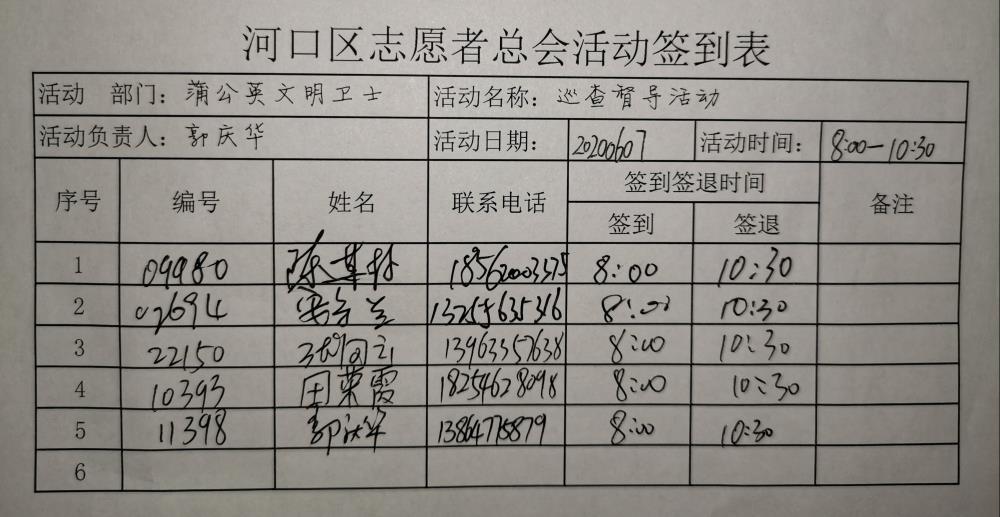 河口区志愿者总会活动签到表
活动 部门：蒲公英文明卫士 活动名称：巡查督导活动
活动负责人：郭庆华 活动日期：20200607 活动时间：8:00—10:30
序号 编号 姓名 联系电话 签到签退时间 备注
签到 签退
1 09980 18562003375 8:00 10:30
2 02694 13255635316 8:00 10:30
3 22150 13963357638 8:00 10:30
4 10393 田荣霞 18254628098 8:00 10:30
5 11398 郭庆华 13864775879 8:00 10:30
6